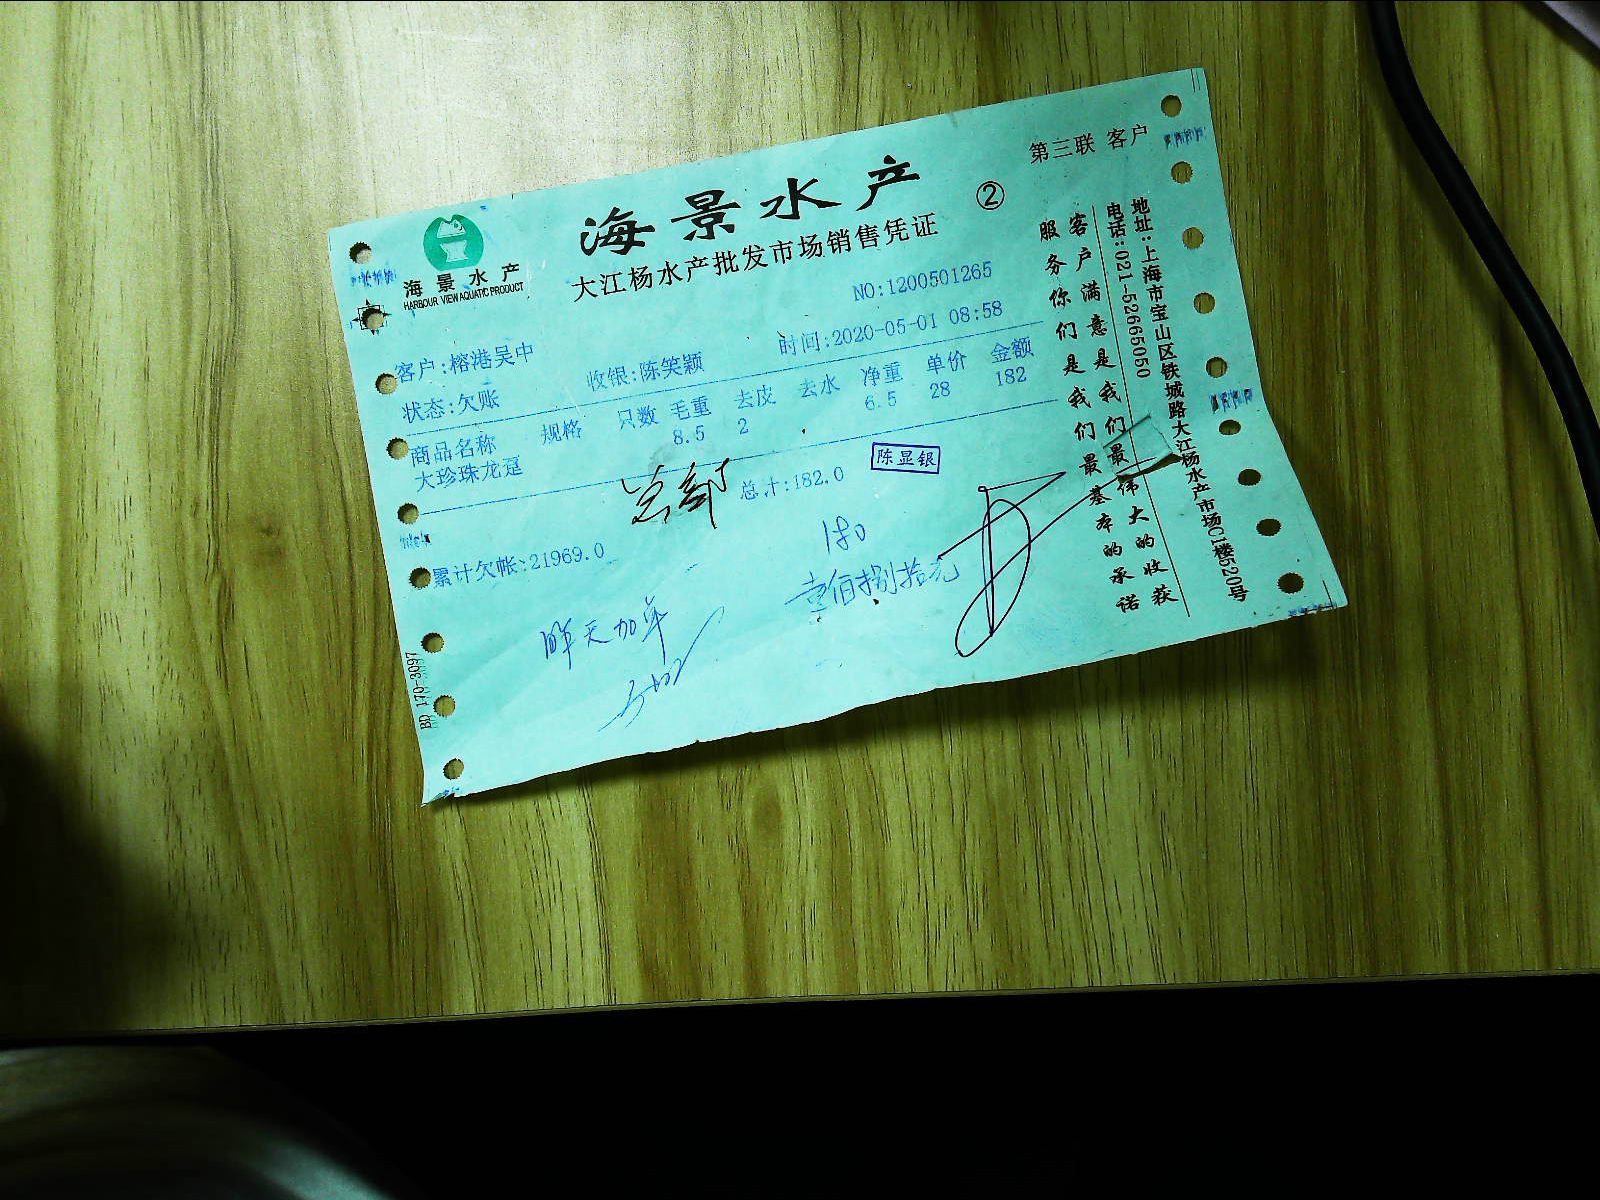 第三联 客户
海景水产
②
海景水产
HARBOUR VIEW AQUATIC PRODUCT
大江杨水产批发市场销售凭证
NO:1200501265
客户:榕港吴中
收银:陈笑颖
时间:2020-05-01 08:58
状态:欠账
商品名称 规格 只数 毛重 去皮 去水 净重 单价 金额
大珍珠龙趸 8.5 2 6.5 28 182
总部
总计:182.0
陈显银
累计欠帐:21969.0
180
壹佰捌拾元
昨天加单
BD 170-3097
服务你们是我们最基本的承诺
客户满意是我们最伟大的收获
电话:021-52665050
地址:上海市宝山区铁城路大江杨水产市场C1楼520号